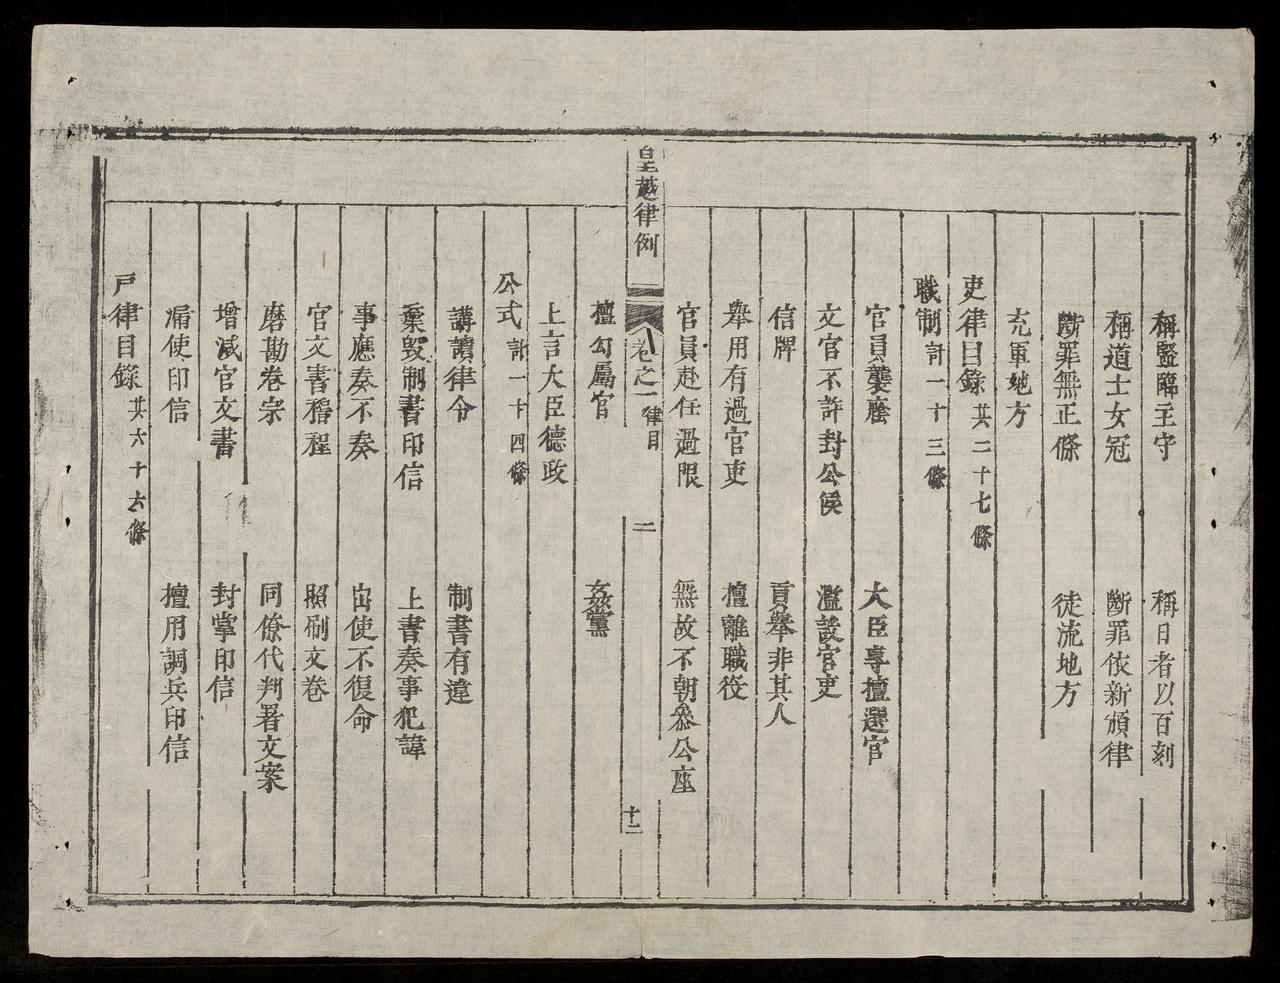 稱監臨主守 稱日者以百刻
稱道士女冠 斷罪依新頒律
斷罪無正條 徒流地方
充軍地方
吏律目錄 共二十七條
職制 計一十三條
官員襲廕 大臣專擅選官
文官不許封公侯 濫設官吏
信牌 貢舉非其人
舉用有過官吏 擅離職役
官員赴任過限 無故不朝參公座
皇越律例 卷之一 律目 二 十二
擅勾屬官 姦黨
上言大臣德政
公式 計一十四條
講讀律令 制書有違
棄毀制書印信 上書奏事犯諱
事應奏不奏 出使不復命
官文書稽程 照刷文卷
磨勘卷宗 同僚代判署文案
增減官文書 封掌印信
漏使印信 擅用調兵印信
戶律目錄 共六十六條